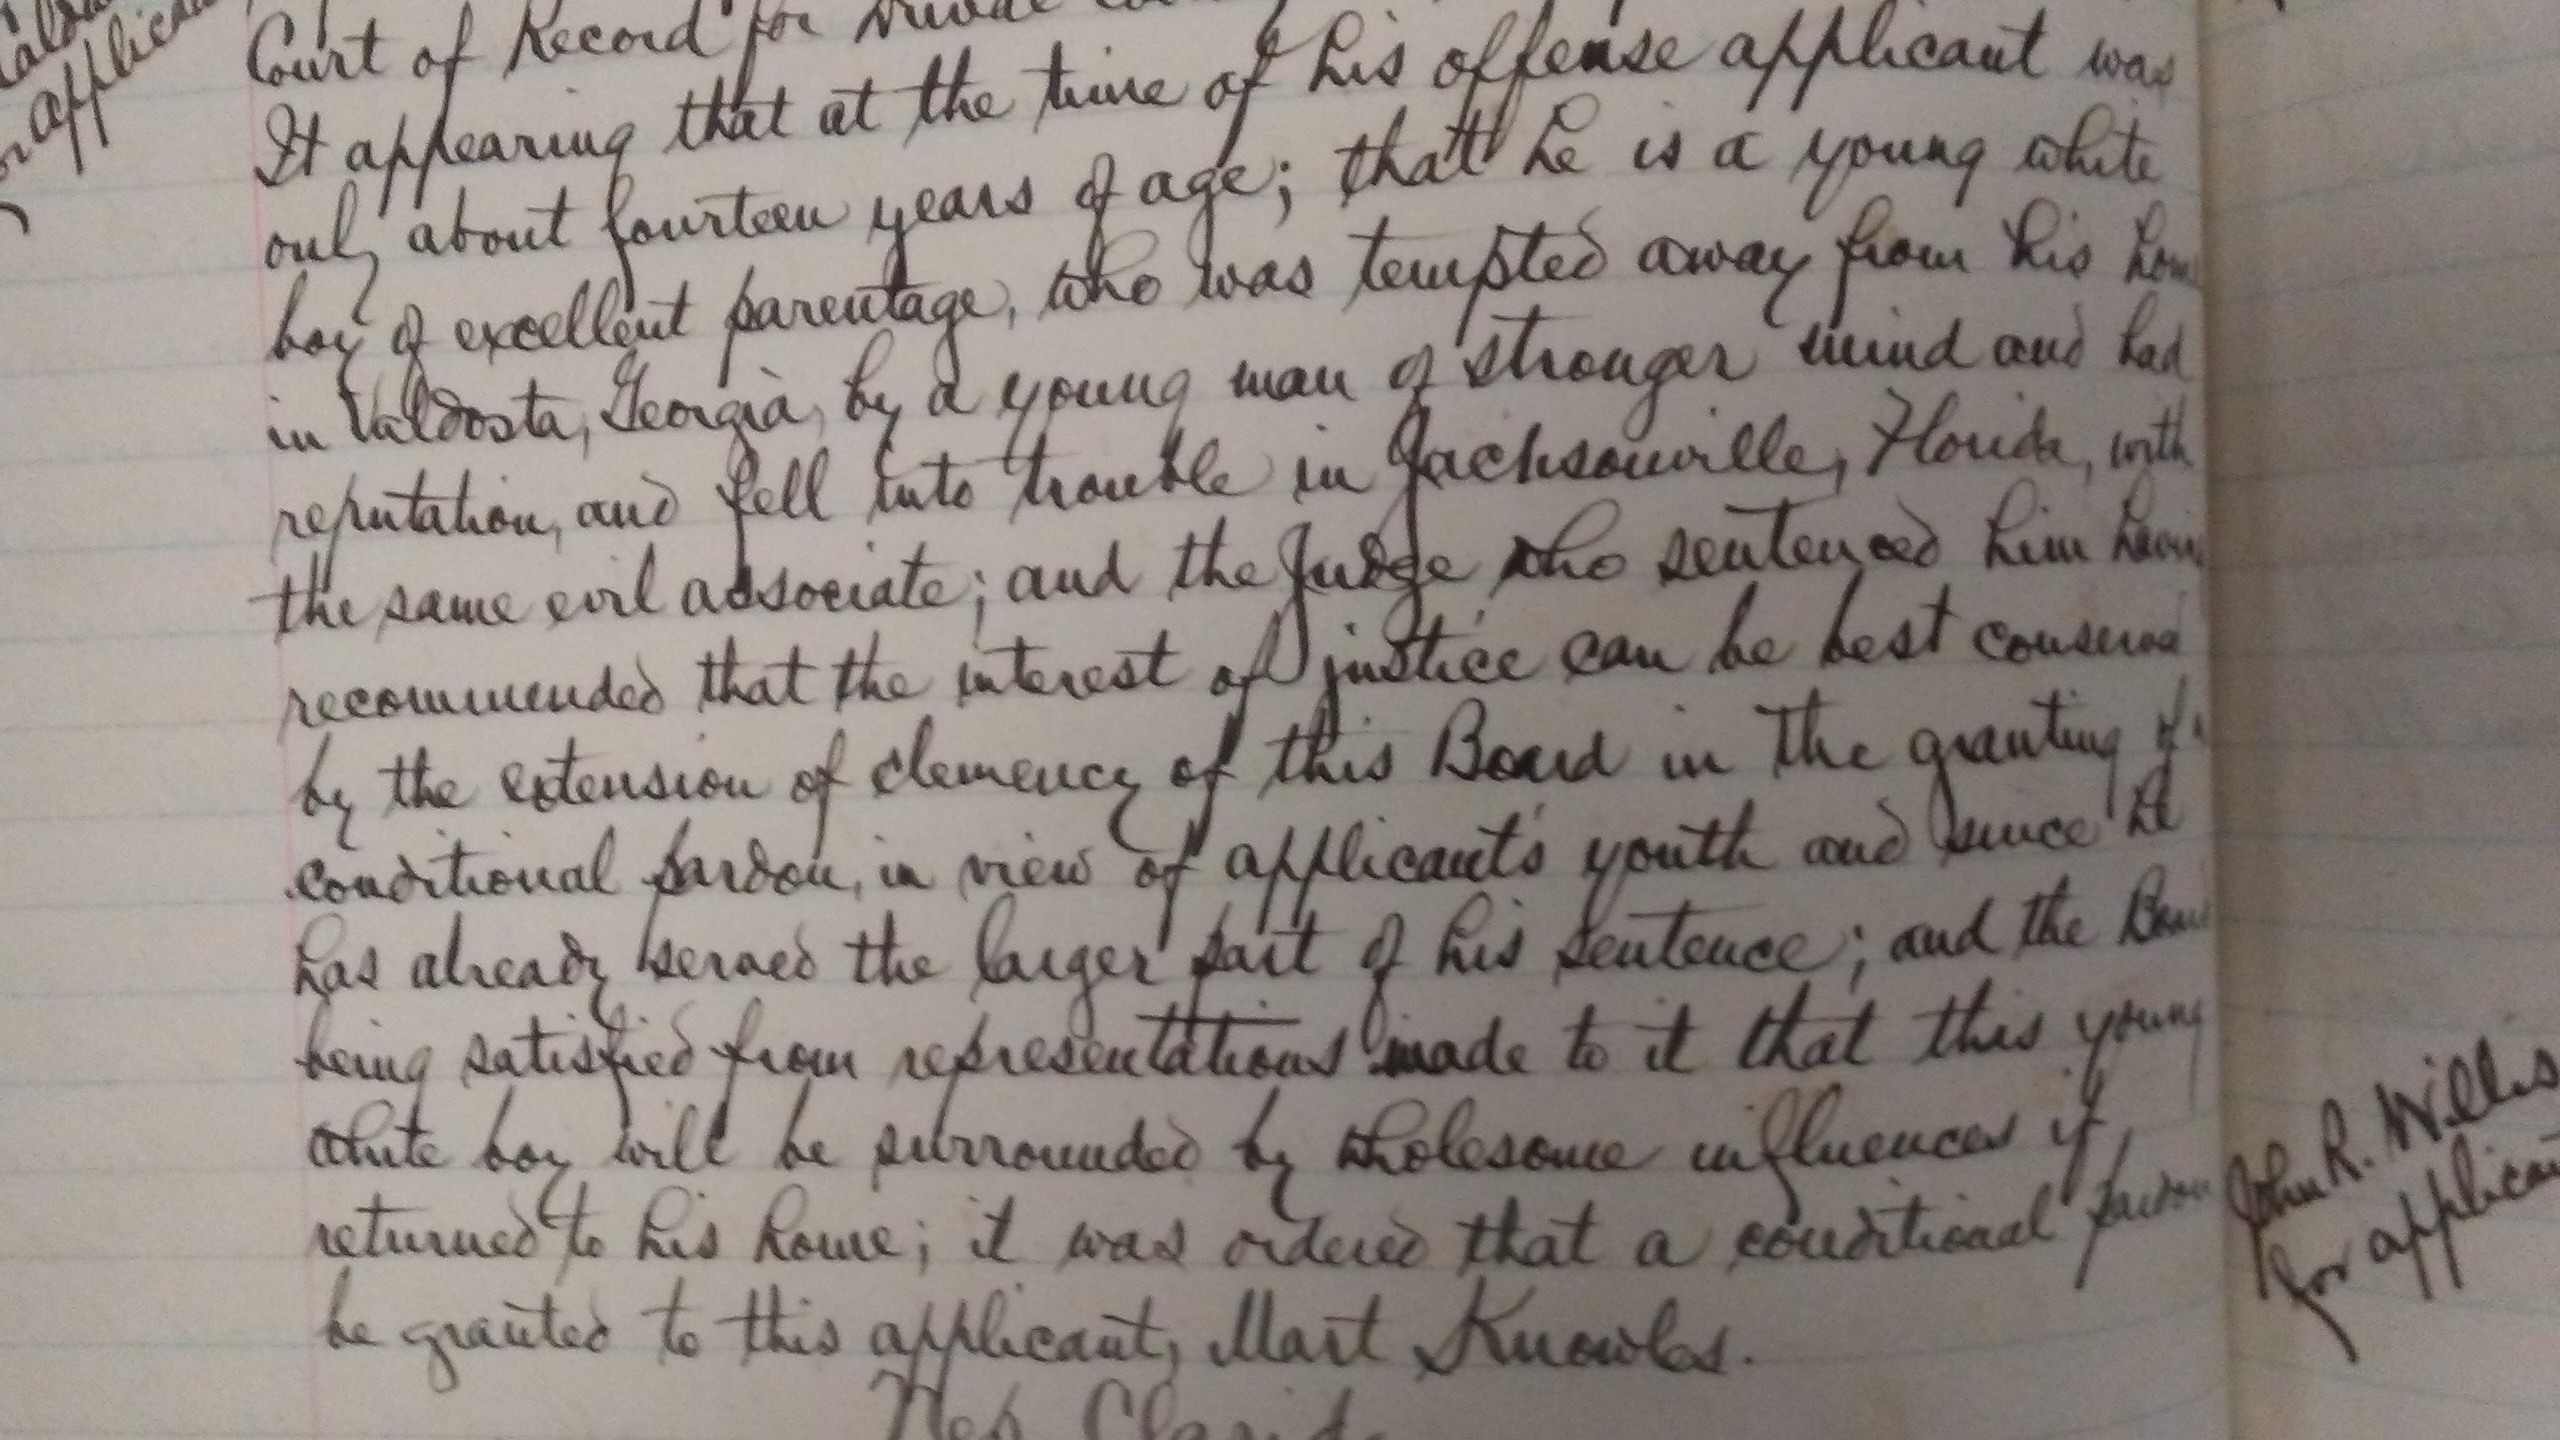 Court of Record for
It appearing that at the time of his offense applicant was
only about fourteen years of age; that he is a young white
boy of excellent parentage, who was tempted away from his hom
in Valdosta, Georgia, by a young man of stronger mind and bad
reputation, and fell into trouble in Jacksonville, Florida, with
the same evil associate; and the Judge who sentenced him havin
recommended that the interest of justice can be best conserved
by the extension of clemency of this Board in the granting of
conditional pardon, in view of applicant's youth and since he
has already served the larger part of his sentence; and the Boar
being satisfied from representations made to it that this young
white boy will be surrounded by wholesome influences if
returned to his home; it was ordered that a conditional pardon
be granted to this applicant, Mart Knowles.
John R. Willis
For applican